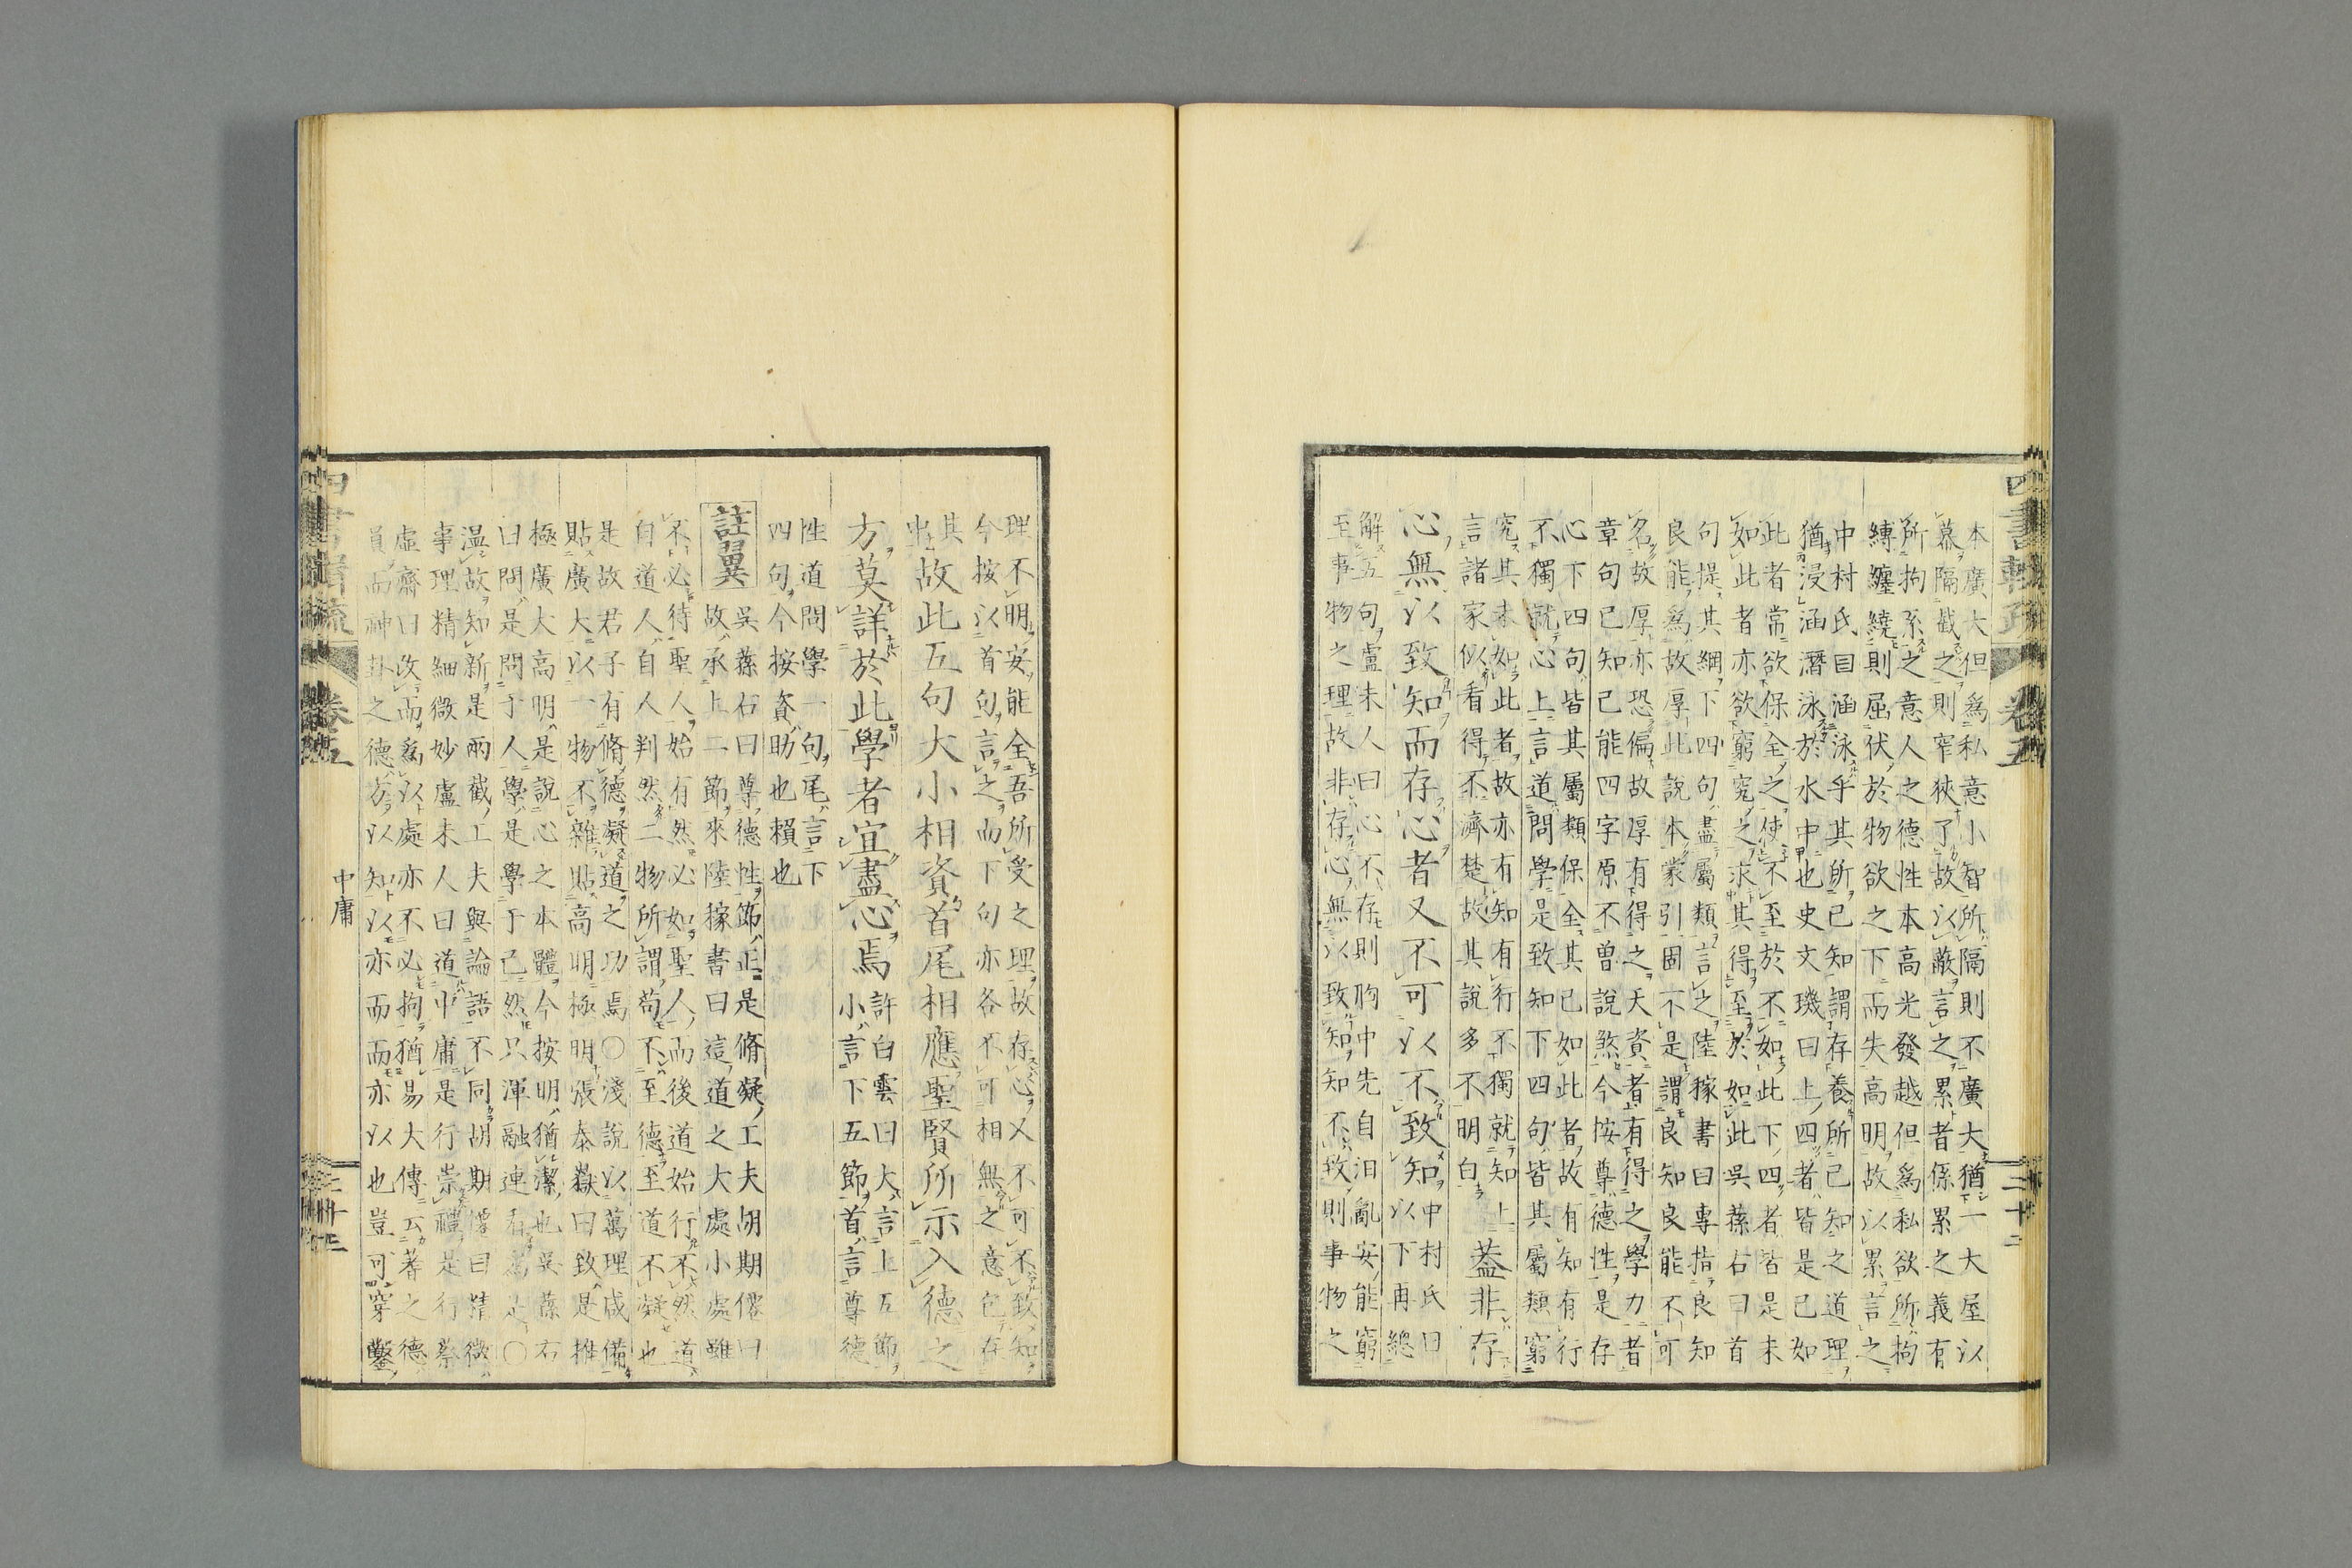 本廣大但爲私意小智所隔則不廣大猶一大屋以
幕隔截之則窄狹了故以蔽言之累者係累之義有
所拘系之意人之德性本高光發越但爲私欲所拘
縛纏繞則屈伏於物欲之下而失高明故以累言之
中村氏目涵泳乎其所已知謂存養所已知之道理
猶浸涵潛泳於水中也史文璣曰上四者皆是已如
此者常欲保全之使不至於不如此下四者皆是未
如此者亦欲窮究之求其得至於如此吳蓀右曰首
句提其綱下四句盡屬類言之陸稼書曰專指良知
良能爲故厚此說本蒙引固不是謂良知良能不可
名故厚亦恐偏故厚有得之天資者有得之學力者
章句已知已能四字原不曾說煞今按尊德性是存
心下四句皆其屬類保全其已如此者故有知有行
不獨就心上言道問學是致知下四句皆其屬類窮
究其未如此者故亦有知有行不獨就知上
言諸家似看得不濟楚故其說多不明白
蓋非存
心無以致知而存心者又不可以不致知
中村氏曰
以下再總
解五句盧未人曰心不存則胸中先自汨亂安能窮
至事物之理故非存心無以致知知不致則事物之
四書輯疏
卷五
三十二
理不明安能全吾所受之理故存心又不可不致知
今按以首句言之而下句亦各不可相無之意包在
其
中
故此五句大小相資首尾相應聖賢所示入德之
方莫詳於此學者宜盡心焉
許白雲曰大言上五節
小言下五節首言尊德
性道問學一句尾言下
四句今按資助也賴也
註翼
吳蓀右曰尊德性節正是脩凝工夫胡期僊曰
故承上二節來陸稼書曰這道之大處小處雖
不必待聖人始有然必如聖人而後道始行不然道
自道人自人判然二物所謂苟不至德至道不凝也
是故君子有脩德凝道之功焉○淺說以萬理咸備
貼廣大以一物不雜貼高明極明張泰嶽曰致是推
極廣大高明是說心之本體今按明猶潔也吳蓀右
曰問是問于人學是學于己然只渾融連看爲是○
溫故知新是兩截工夫與論語不同胡期僊曰精微
事理精細微妙盧未人曰道中庸是行崇禮是行蔡
虛齋曰改而爲以處亦不必拘猶易大傳云蓍之德
員而神卦之德方以知以亦而而亦以也豈可穿鑿
中庸